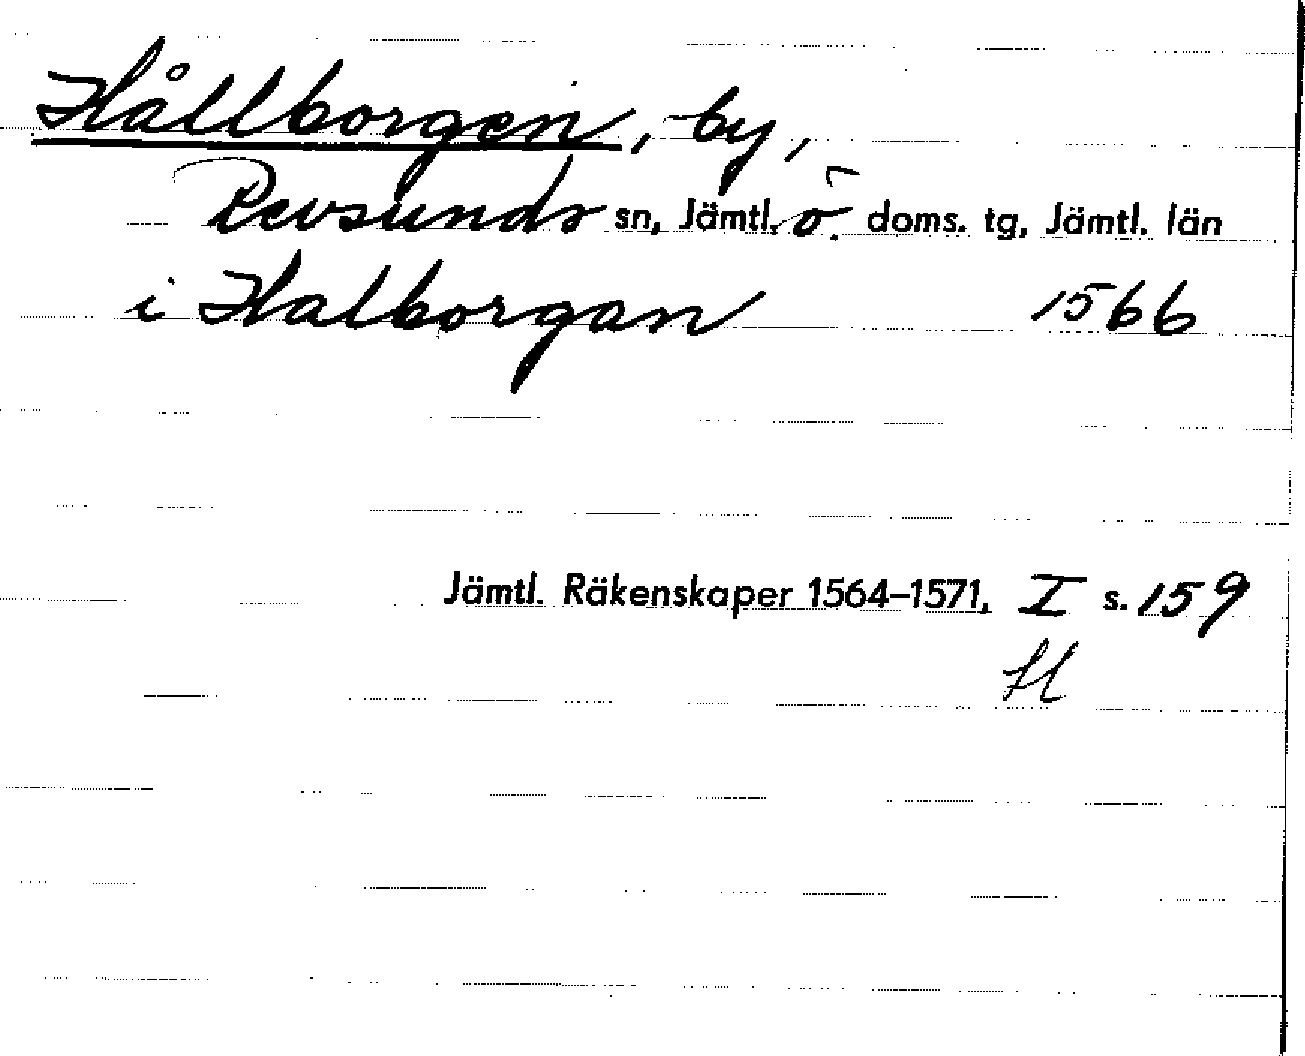 Hållborgen, by,
Revsunds sn, Jämtl. ö. doms. tg, Jämtl. län
i Halborgan 1566
Jämtl. Räkenskaper 1564–1571, I s. 159